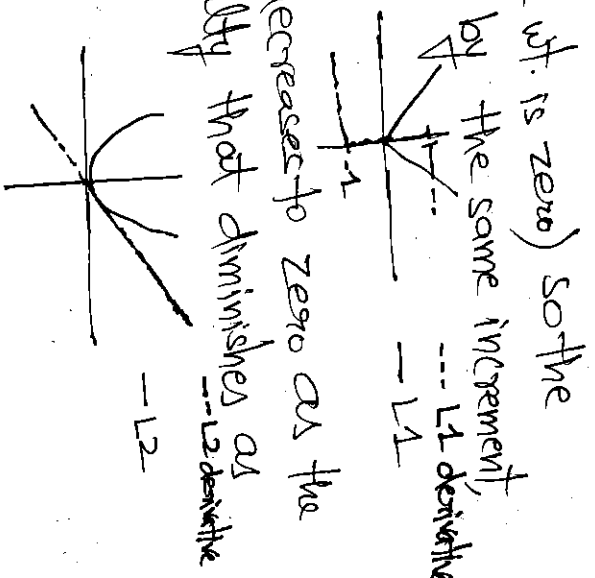 wt. is zero) so the
by the same increment,
--- L1 derivative
— L1
-1
to zero as the
that diminishes as
-- L2 derivative
— L2